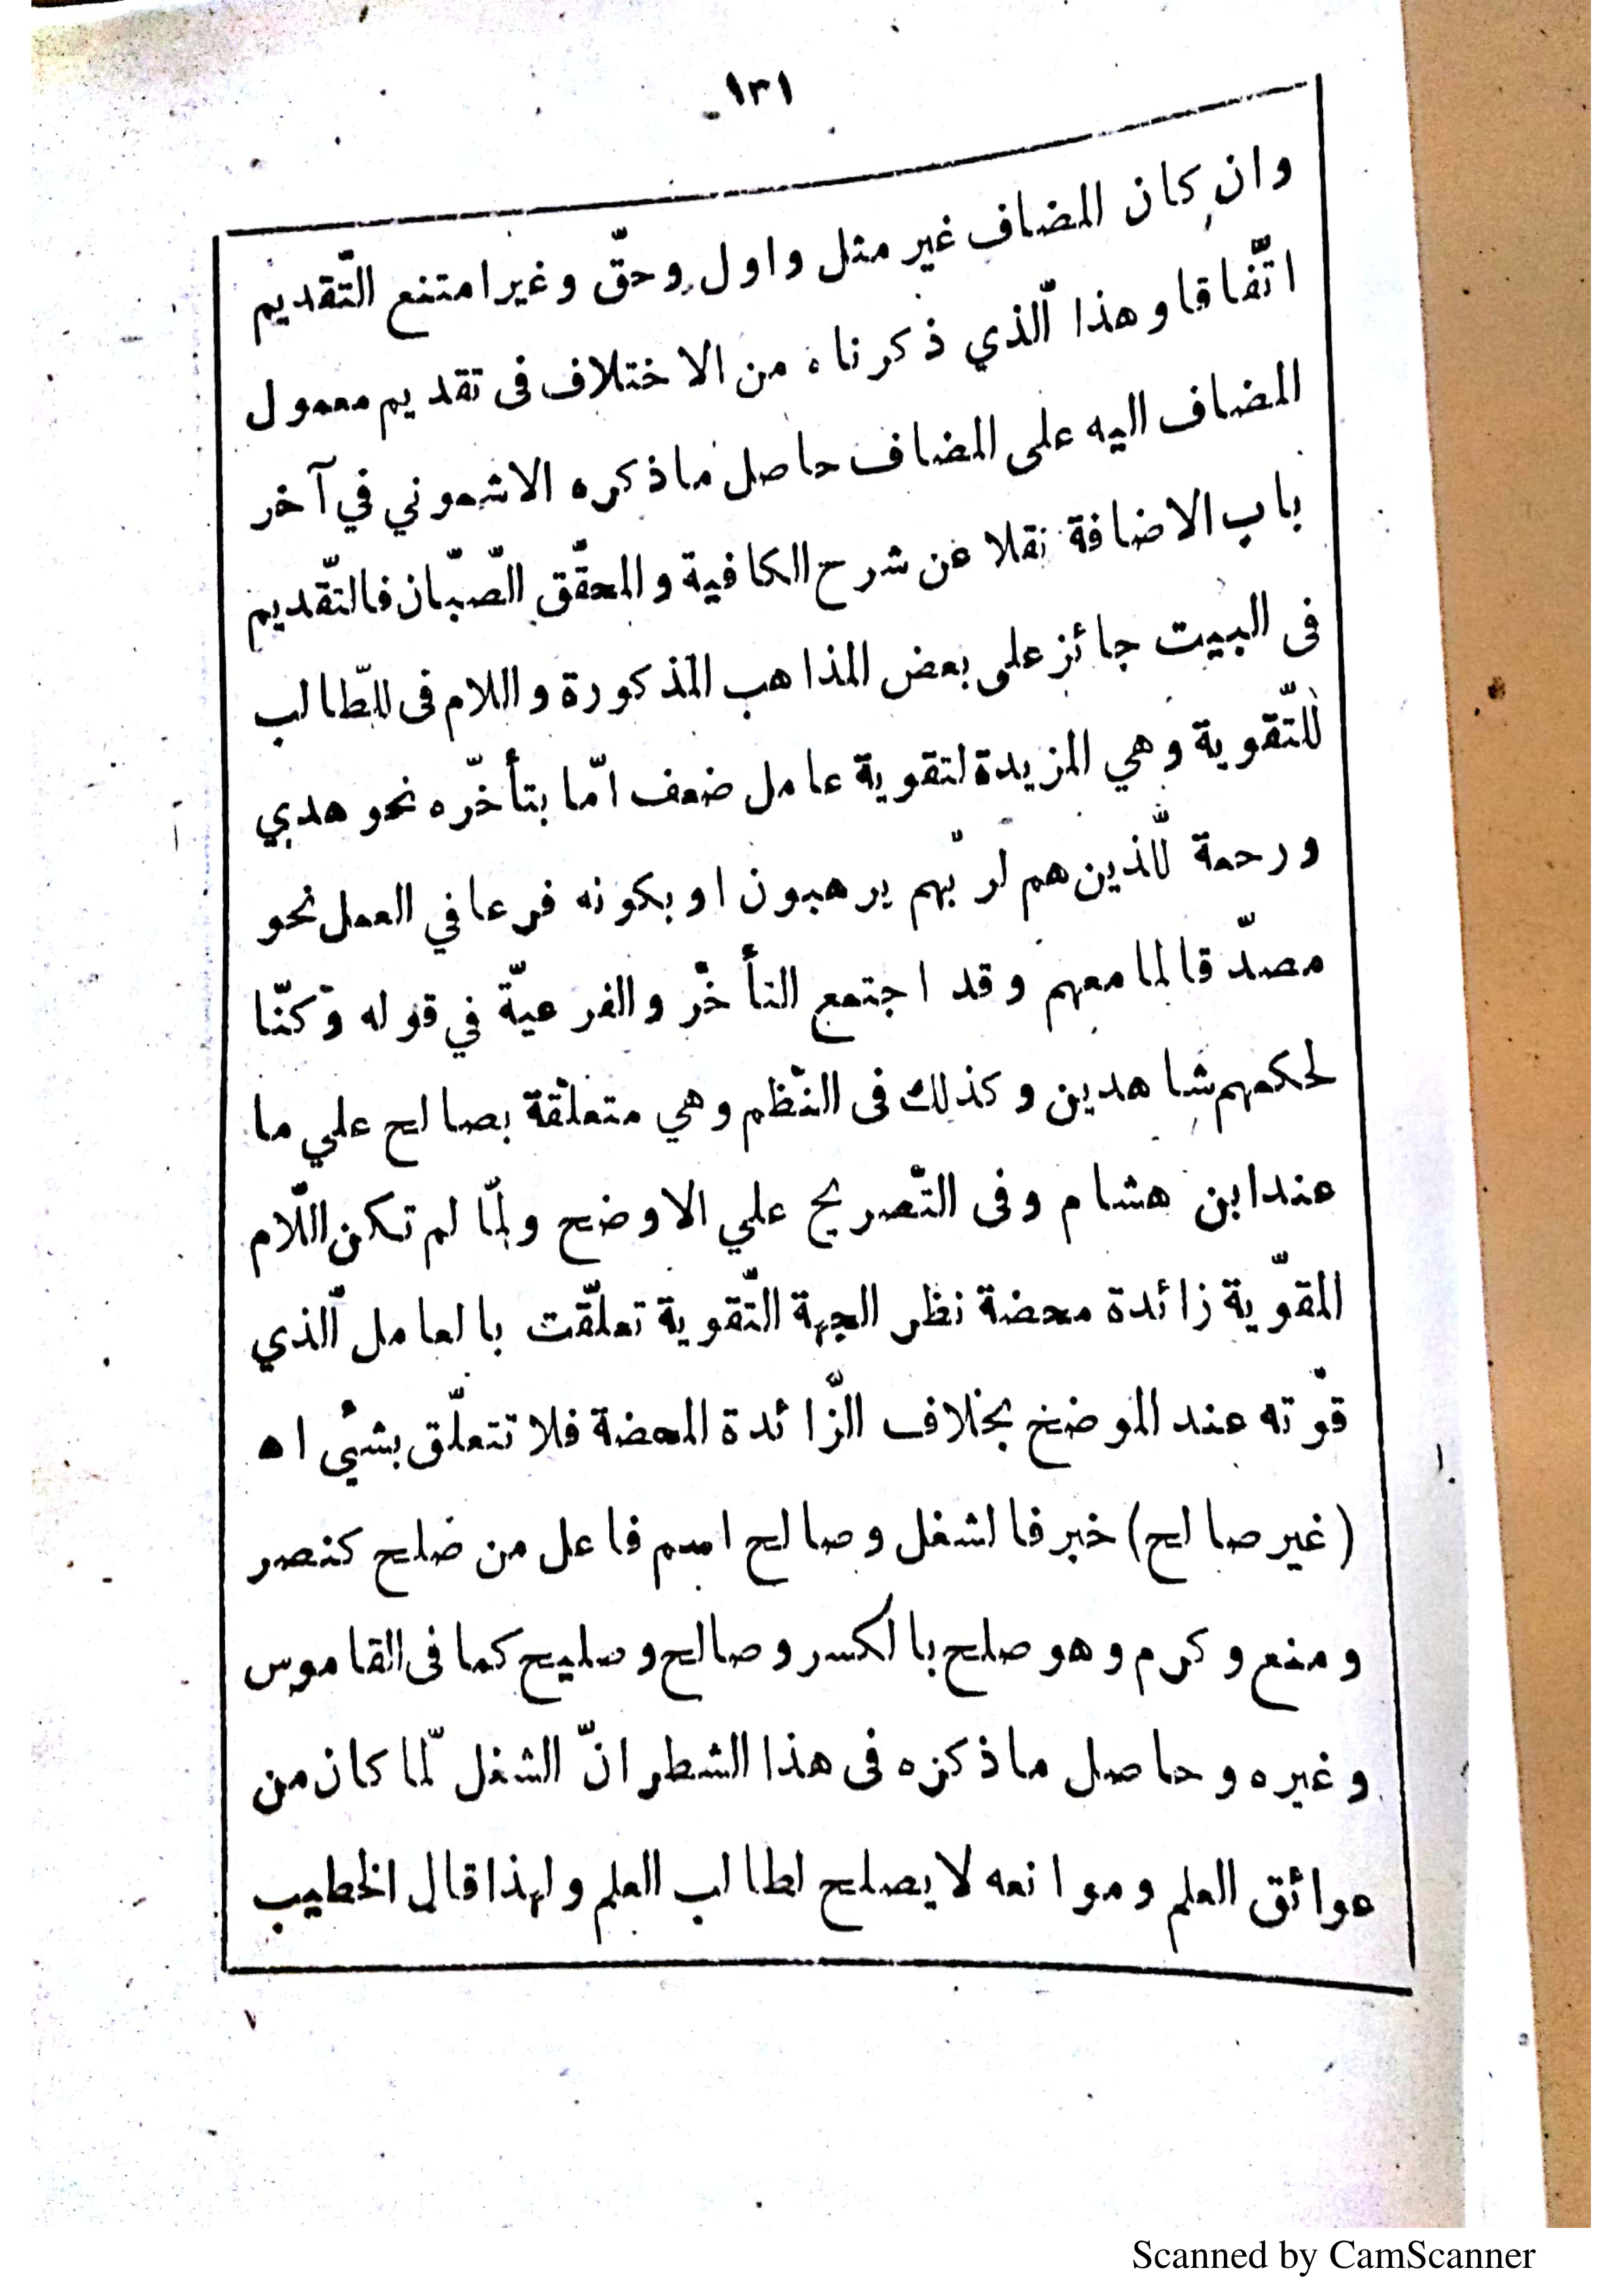 ١٣١
وان كان المضاف غير مثل واول وحقّ وغير امتنع التّقديم
اتّفاقا وهذا الّذي ذكرناه من الاختلاف فى تقديم معمول
المضاف اليه على المضاف حاصل ماذكره الاشموني في آخر
باب الاضافة نقلا عن شرح الكافية والمحقّق الصّبّان فالتّقديم
فى البيت جائز على بعض المذاهب المذكورة واللام فى للطّالب
للتّقوية وهي المزيدة لتقوية عامل ضعف امّا بتأخّره نحو هدي
ورحمة للّذين هم لربّهم يرهبون او بكونه فرعا في العمل نحو
مصدّقا لما معهم وقد اجتمع التأخّر والفرعيّة في قوله وكنّا
لحكمهم شاهدين وكذلك فى النّظم وهي متعلّقة بصالح علي ما
عند ابن هشام وفى التّصريح علي الاوضح ولمّا لم تكن اللّام
المقوّية زائدة محضة نظر الجهة التّقوية تعلّقت بالعامل الّذي
قوّته عند الموضخ بخلاف الزّائدة المحضة فلا تتعلّق بشيْي اه
(غير صالح) خبر فالشغل وصالح اسم فاعل من صلح كنصر
ومنع وكرم وهو صلح بالكسر وصالح وصليح كما فى القاموس
وغيره وحاصل ماذكره فى هذا الشطر انّ الشغل لمّا كان من
عوائق العلم وموانعه لا يصلح لطالب العلم ولهذا قال الخطيب
Scanned by CamScanner